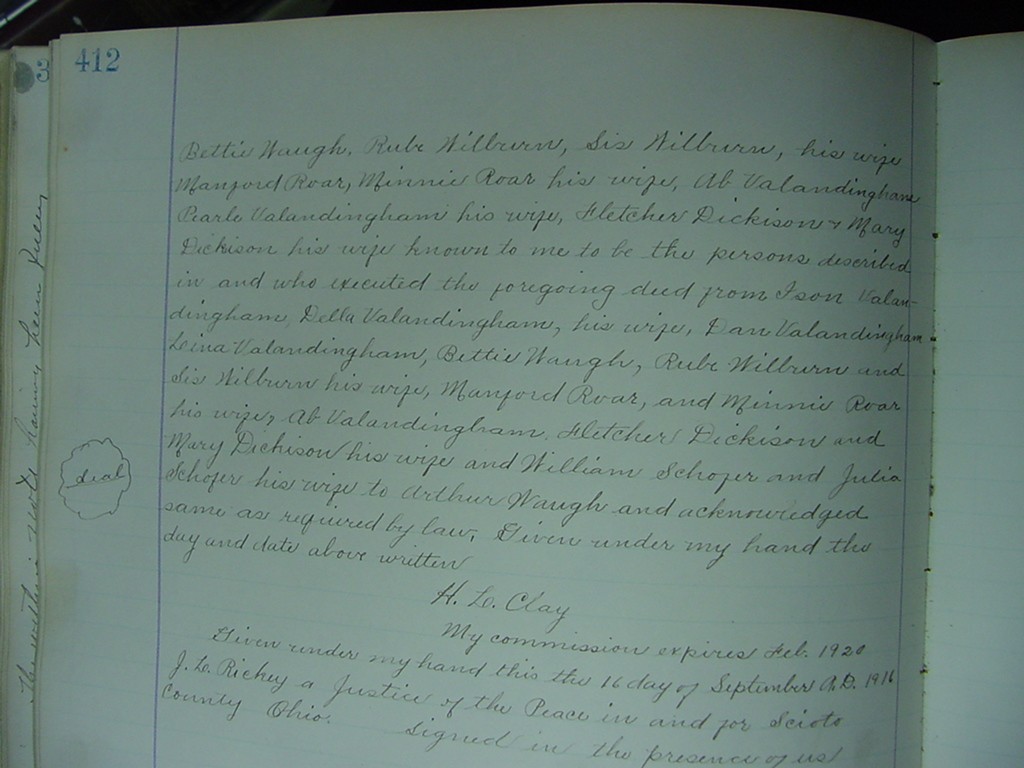 412
3
Bettie Waugh, Rube Wilburn, Sis Wilburn, his wife
Manford Roar, Minnie Roar his wife, Ab Valandingham
Pearle Valandingham his wife, Fletcher Dickison & Mary
Dickison his wife known to me to be the persons described
in and who executed the foregoing deed from Ison Valan-
dingham, Della Valandingham, his wife, Dan Valandingham
Lina Valandingham, Bettie Waugh, Rube Wilburn and
Sis Wilburn his wife, Manford Roar, and Minnie Roar
his wife, Ab Valandingham, Fletcher Dickison and
Mary Dickison his wife and William Schofer and Julia
Schofer his wife to Arthur Waugh and acknowledged
same as required by law, Given under my hand the
day and date above written
seal
H. L. Clay
My commission expires Feb. 1920
Given under my hand this the 16 day of September A.D. 1916
J. L. Richey a Justice of the Peace in and for Scioto
County Ohio.
Signed in the presence of us
having been fully